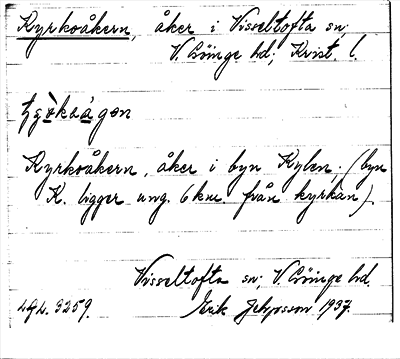 Kyrkoåkern, åker i Visseltofta sn,
V. Göinge hd; Krist. l.
Kyrkoåkern, åker i byn Kylen, (byn
K. ligger ung. 6 km. från kyrkan).
Visseltofta sn; V. Göinge hd.
3259. Erik Jeppsson 1937.